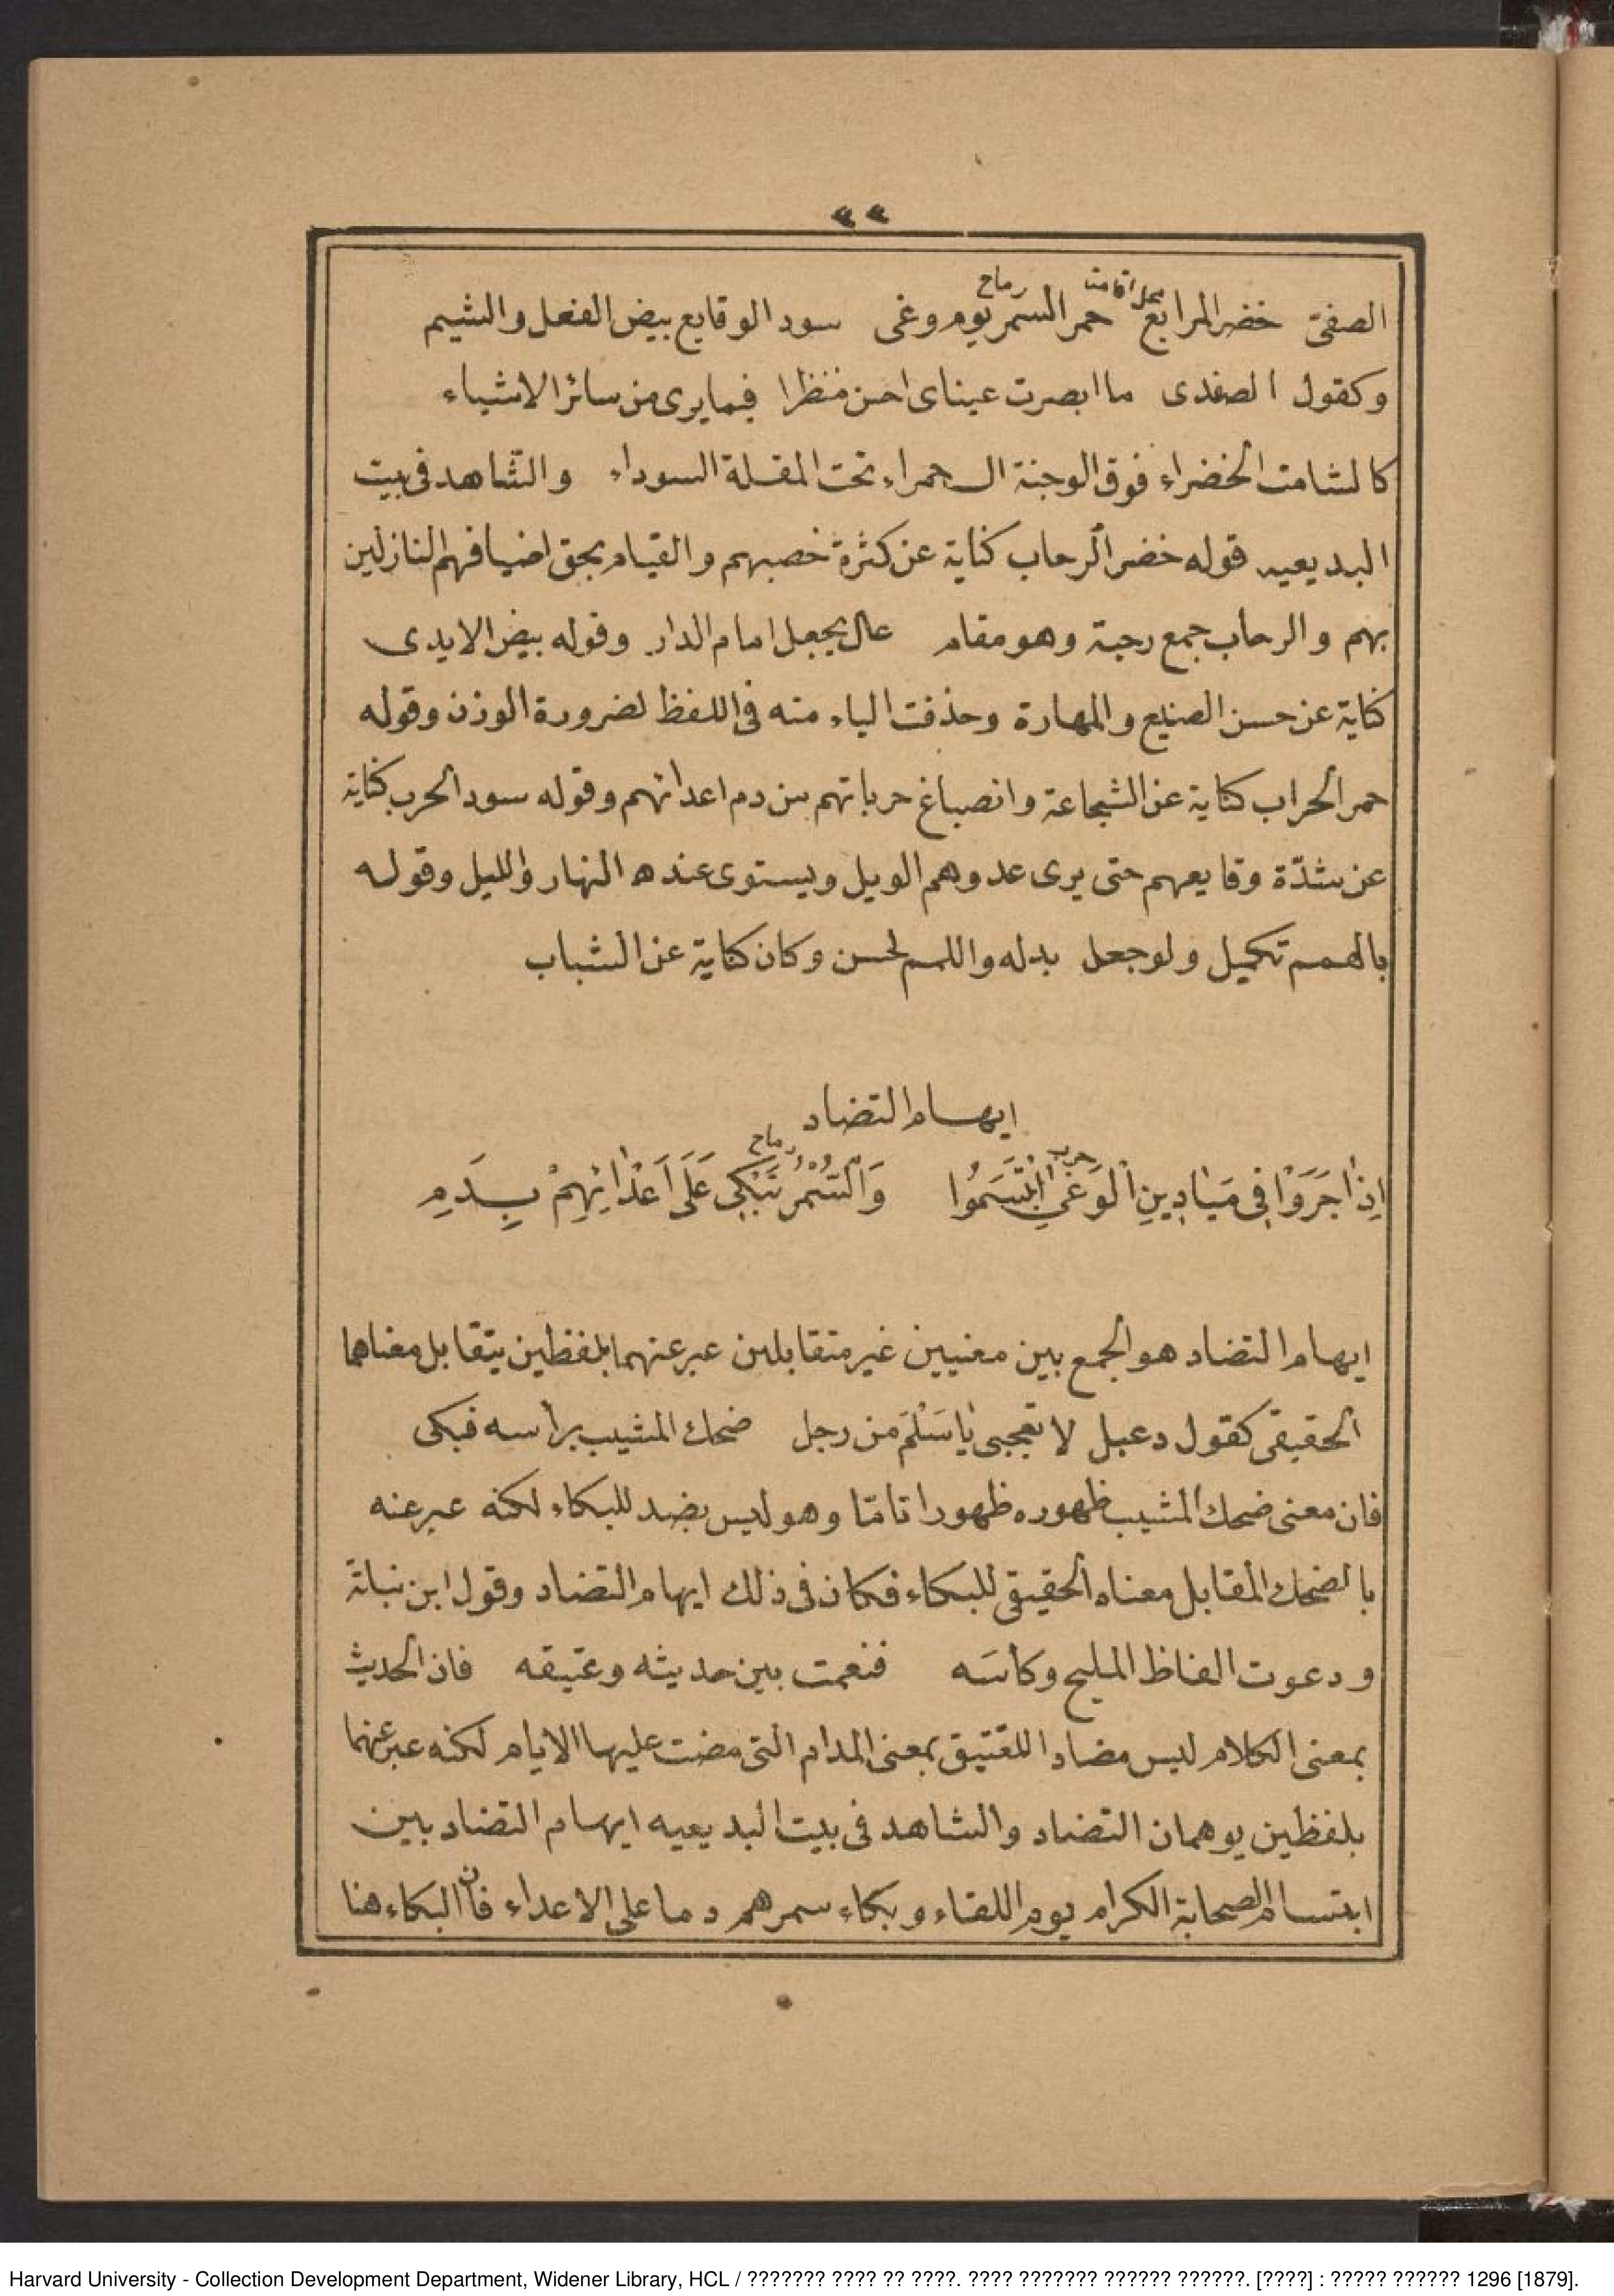 ٣٣
محل اقامت رماح
الصفى خضر المرابع حمر السمر يوم وغى سود الوقايع بيض الفعل والشيم
وكقول الصفدى ما ابصرت عيناى احسن منظرا فيما يرى من سائر الاشياء
كالشامت الخضراء فوق الوجنة ال حمراء تحت المقلة السوداء والشاهد فى بيت
البديعيه قوله خضر الرحاب كناية عن كثرة خصبهم والقيام بحق اضيافهم النازلين
بهم والرحاب جمع رحبة وهو مقام عال يجعل امام الدار وقوله بيض الايدى
كناية عن حسن الصنيع والمهارة وحذفت الياء منه فى اللفظ لضرورة الوزن وقوله
حمر الحراب كناية عن الشجاعة وانصباغ حرباتهم من دم اعدائهم وقوله سود الحرب كناية
عن شدّة وقايعهم حتى يرى عدوهم الويل ويستوى عنده النهار والليل وقوله
بالهمم تكميل ولو جعل بدله واللمم لحسن وكان كناية عن الشباب
ايهام التضاد
حرب رماح
اِذَا جَرَوْا فِى مَيَادِينِ الْوَغَىِ ابْتَسَمُوا وَالسُّمْرُ تَبْكِى عَلَى اَعْدَائِهِمْ بِدَمِ
ايهام التضاد هو الجمع بين معنيين غير متقابلين عبر عنهما بلفظين يتقابل معناهما
الحقيقى كقول دعبل لا تعجبى يا سَلْمَ من رجل ضحك المشيب براسه فبكى
فان معنى ضحك المشيب ظهوره ظهورا تامّا وهو ليس بضد للبكاء لكنه عبر عنه
بالضحك المقابل معناه الحقيقى للبكاء فكان فى ذلك ايهام التضاد وقول ابن نباتة
ودعوت الفاظ المليح وكاسَه فنعمت بين حديثه وعتيقه فان الحديث
بمعنى الكلام ليس مضادا للعتيق بمعنى المدام التى مضت عليها الايام لكنه عبر عنهما
بلفظين يوهمان التضاد والشاهد فى بيت البديعيه ايهام التضاد بين
ابتسام الصحابة الكرام يوم اللقاء وبكاء سمرهم دما على الاعداء فان البكاء هنا
Harvard University - Collection Development Department, Widener Library, HCL / ??????? ???? ?? ????. ???? ??????? ?????? ??????. [????] : ????? ?????? 1296 [1879].